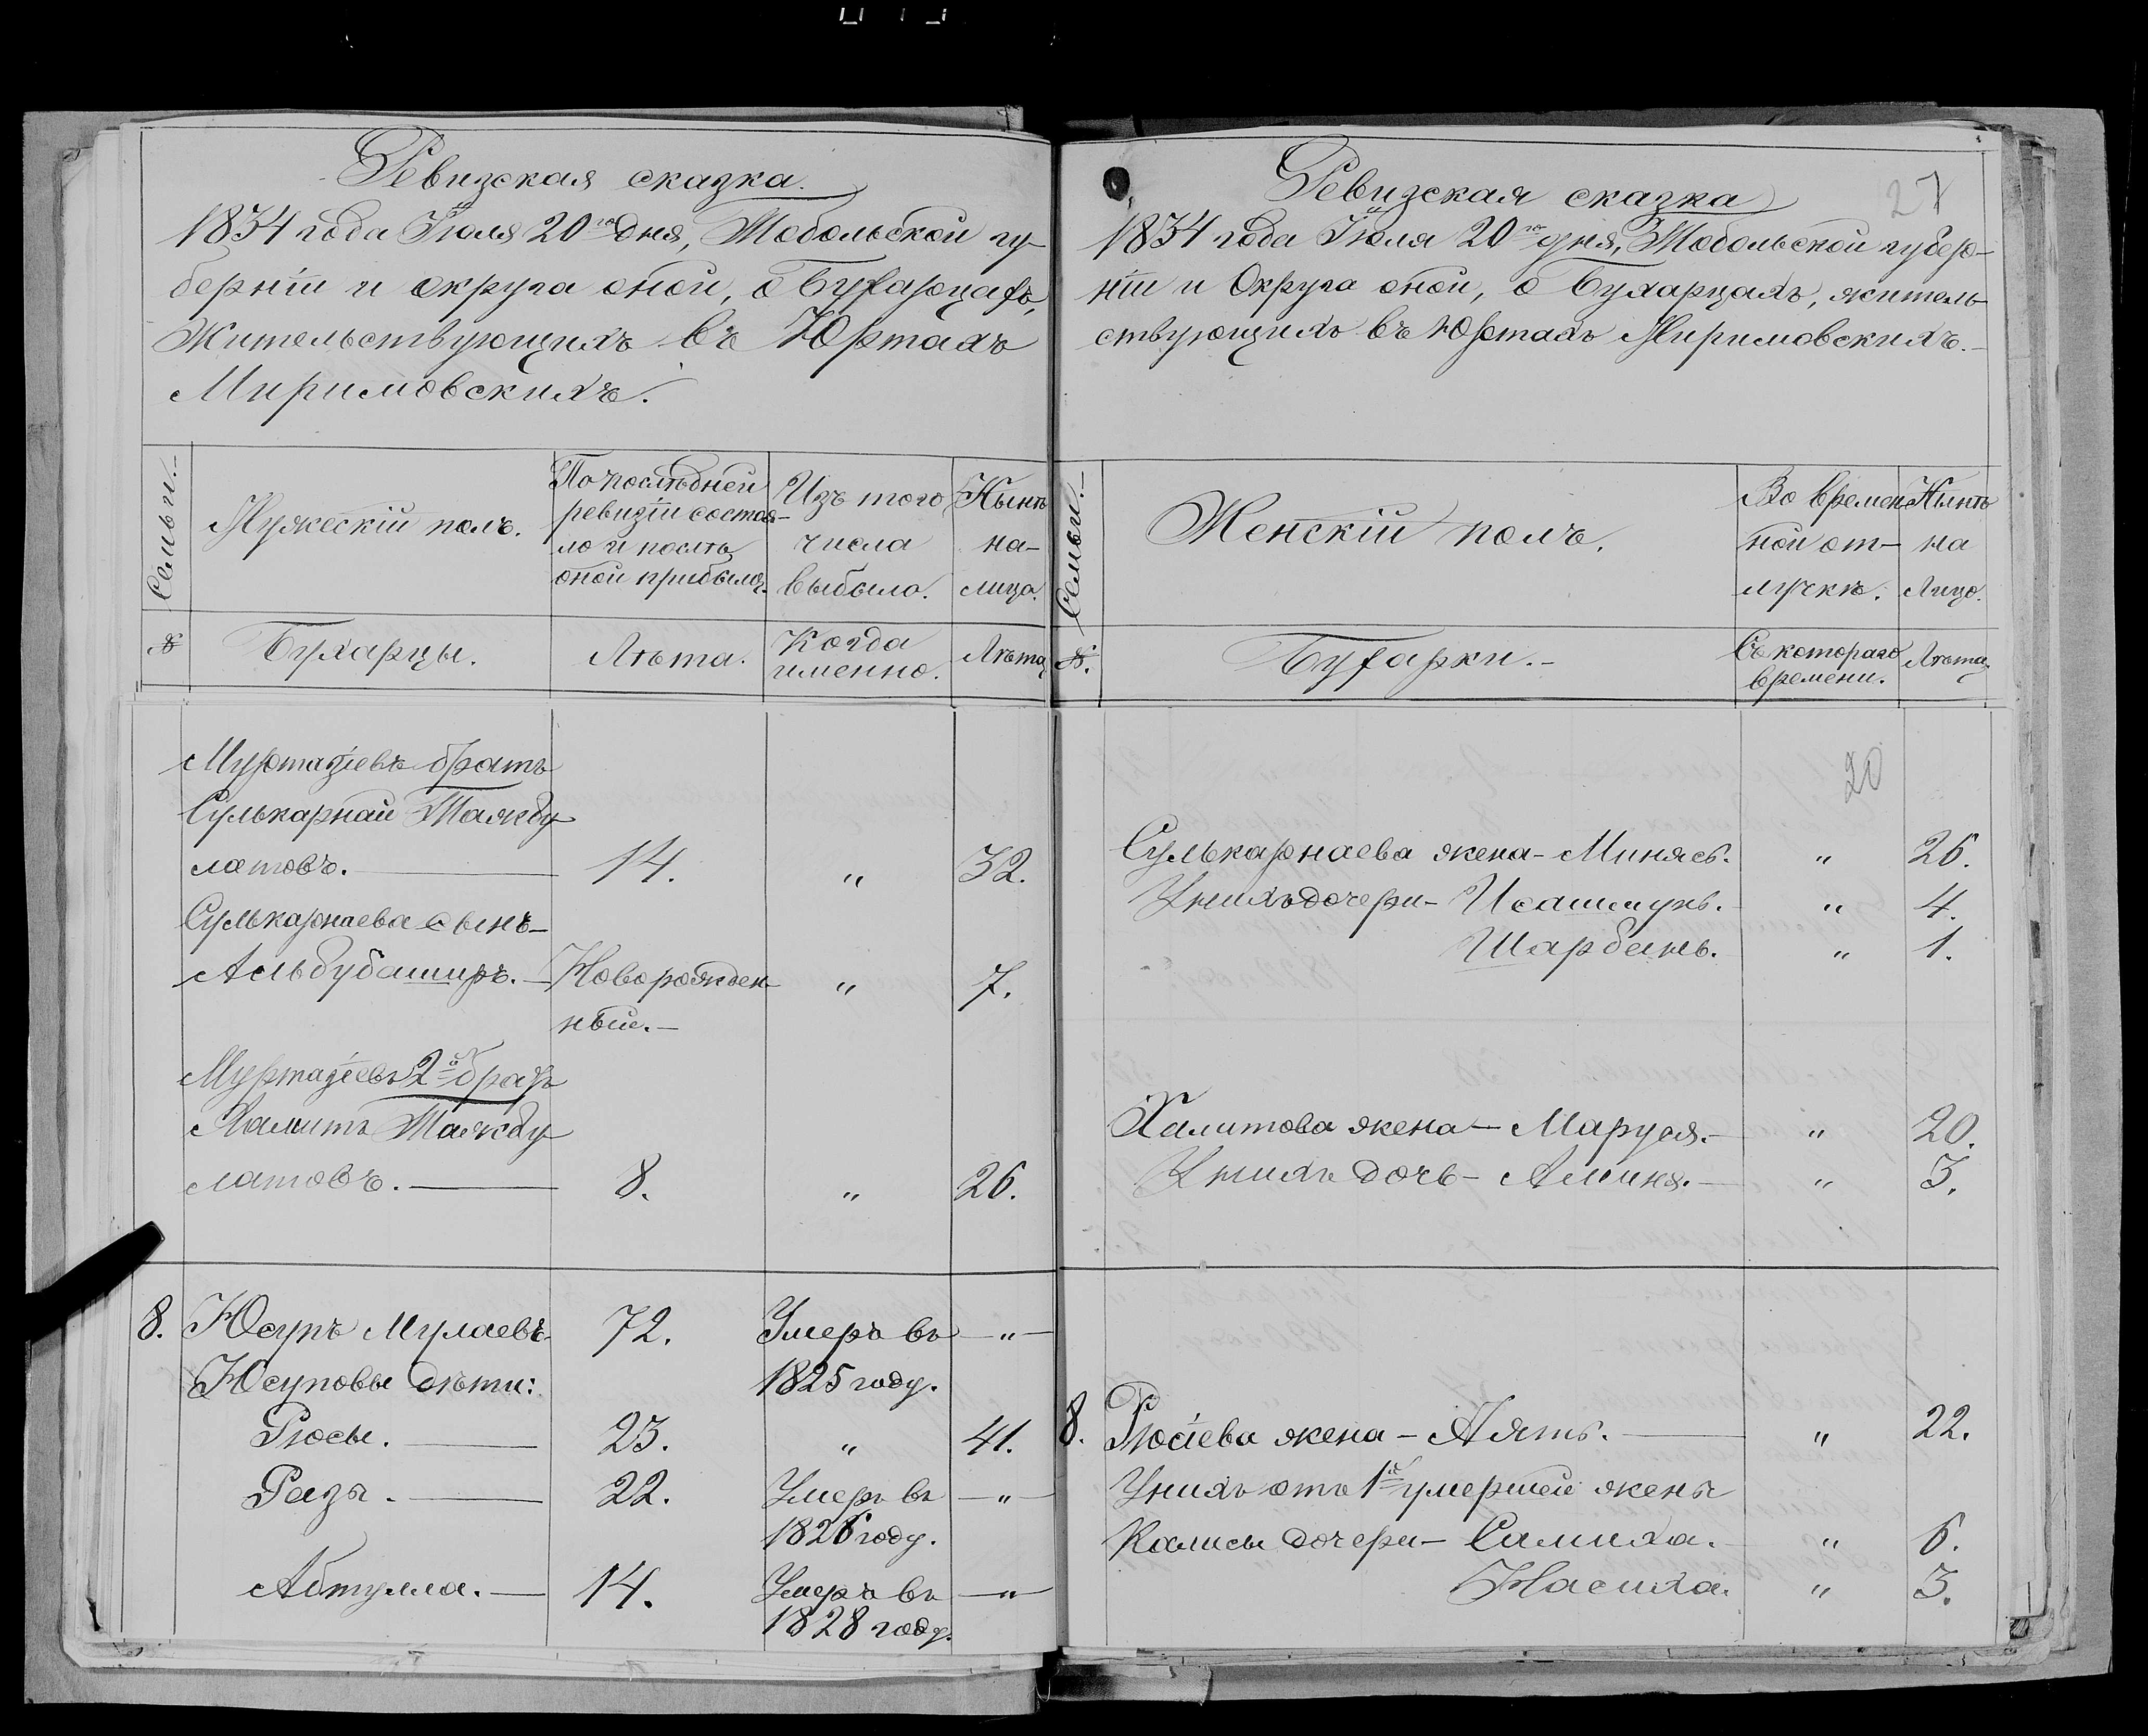 Ревизская сказка.
1834 года Іюля 20го дня, Тобольской гу-
берніи и округа оной, о Бухарцахъ,
Жительствующихъ въ Юртахъ
Миримовскихъ.
Семьи.
Мужескій полъ.
По послѣдней
ревизіи состоя-
ло и послѣ
оной прибыло.
Изъ того
числа
выбыло.
Нынѣ
на-
лицо.
№
Бухарцы.
Лѣта.
Когда
именно.
Лѣта
Муртазіевъ братъ
Сулькарнай Таижбу
латовъ. — 14. " 32.
Сулькарнаева сынъ —
Асьбубаширъ. — Новорожден " 7.
ный. —
Муртазіевъ 2й братъ
Халитъ Таижбу
латовъ. — 8. " 26.
8. Юсупъ Мулаевъ 72. Умеръ въ — " —
Юсуповы дѣти: 1825 году.
Рюсы. — 23. " 41.
Разъ. — 22. Умеръ въ — " —
1826 году.
Абтулла. — 14. Умеръ въ — " —
1828 году.
27
Ревизская сказка
1834 года Іюля 20го дня, Тобольской губер-
ніи и Округа оной, о Бухарцахъ, житель-
ствующихъ въ Юртахъ Миримовскихъ. —
Семьи. —
Женскій полъ.
Во времен
ной от-
лучкѣ.
Нынѣ
на
Лицо.
№.
Бухарки. —
Съ котораго
времени.
Лѣта
20
Сулькарнаева жена — Минясъ. " 26.
У нихъ дочери — Исашпунь. " 4.
Шарбань. " 1.
Халитова жена — Маруся. — " 20.
У нихъ дочь — Аминя. — " 3.
8. Рюсіева жена — Аять. — " 22.
У нихъ отъ 1й умершей жены
Калисы дочери — Салиха. " 6.
Насиха. " 3.